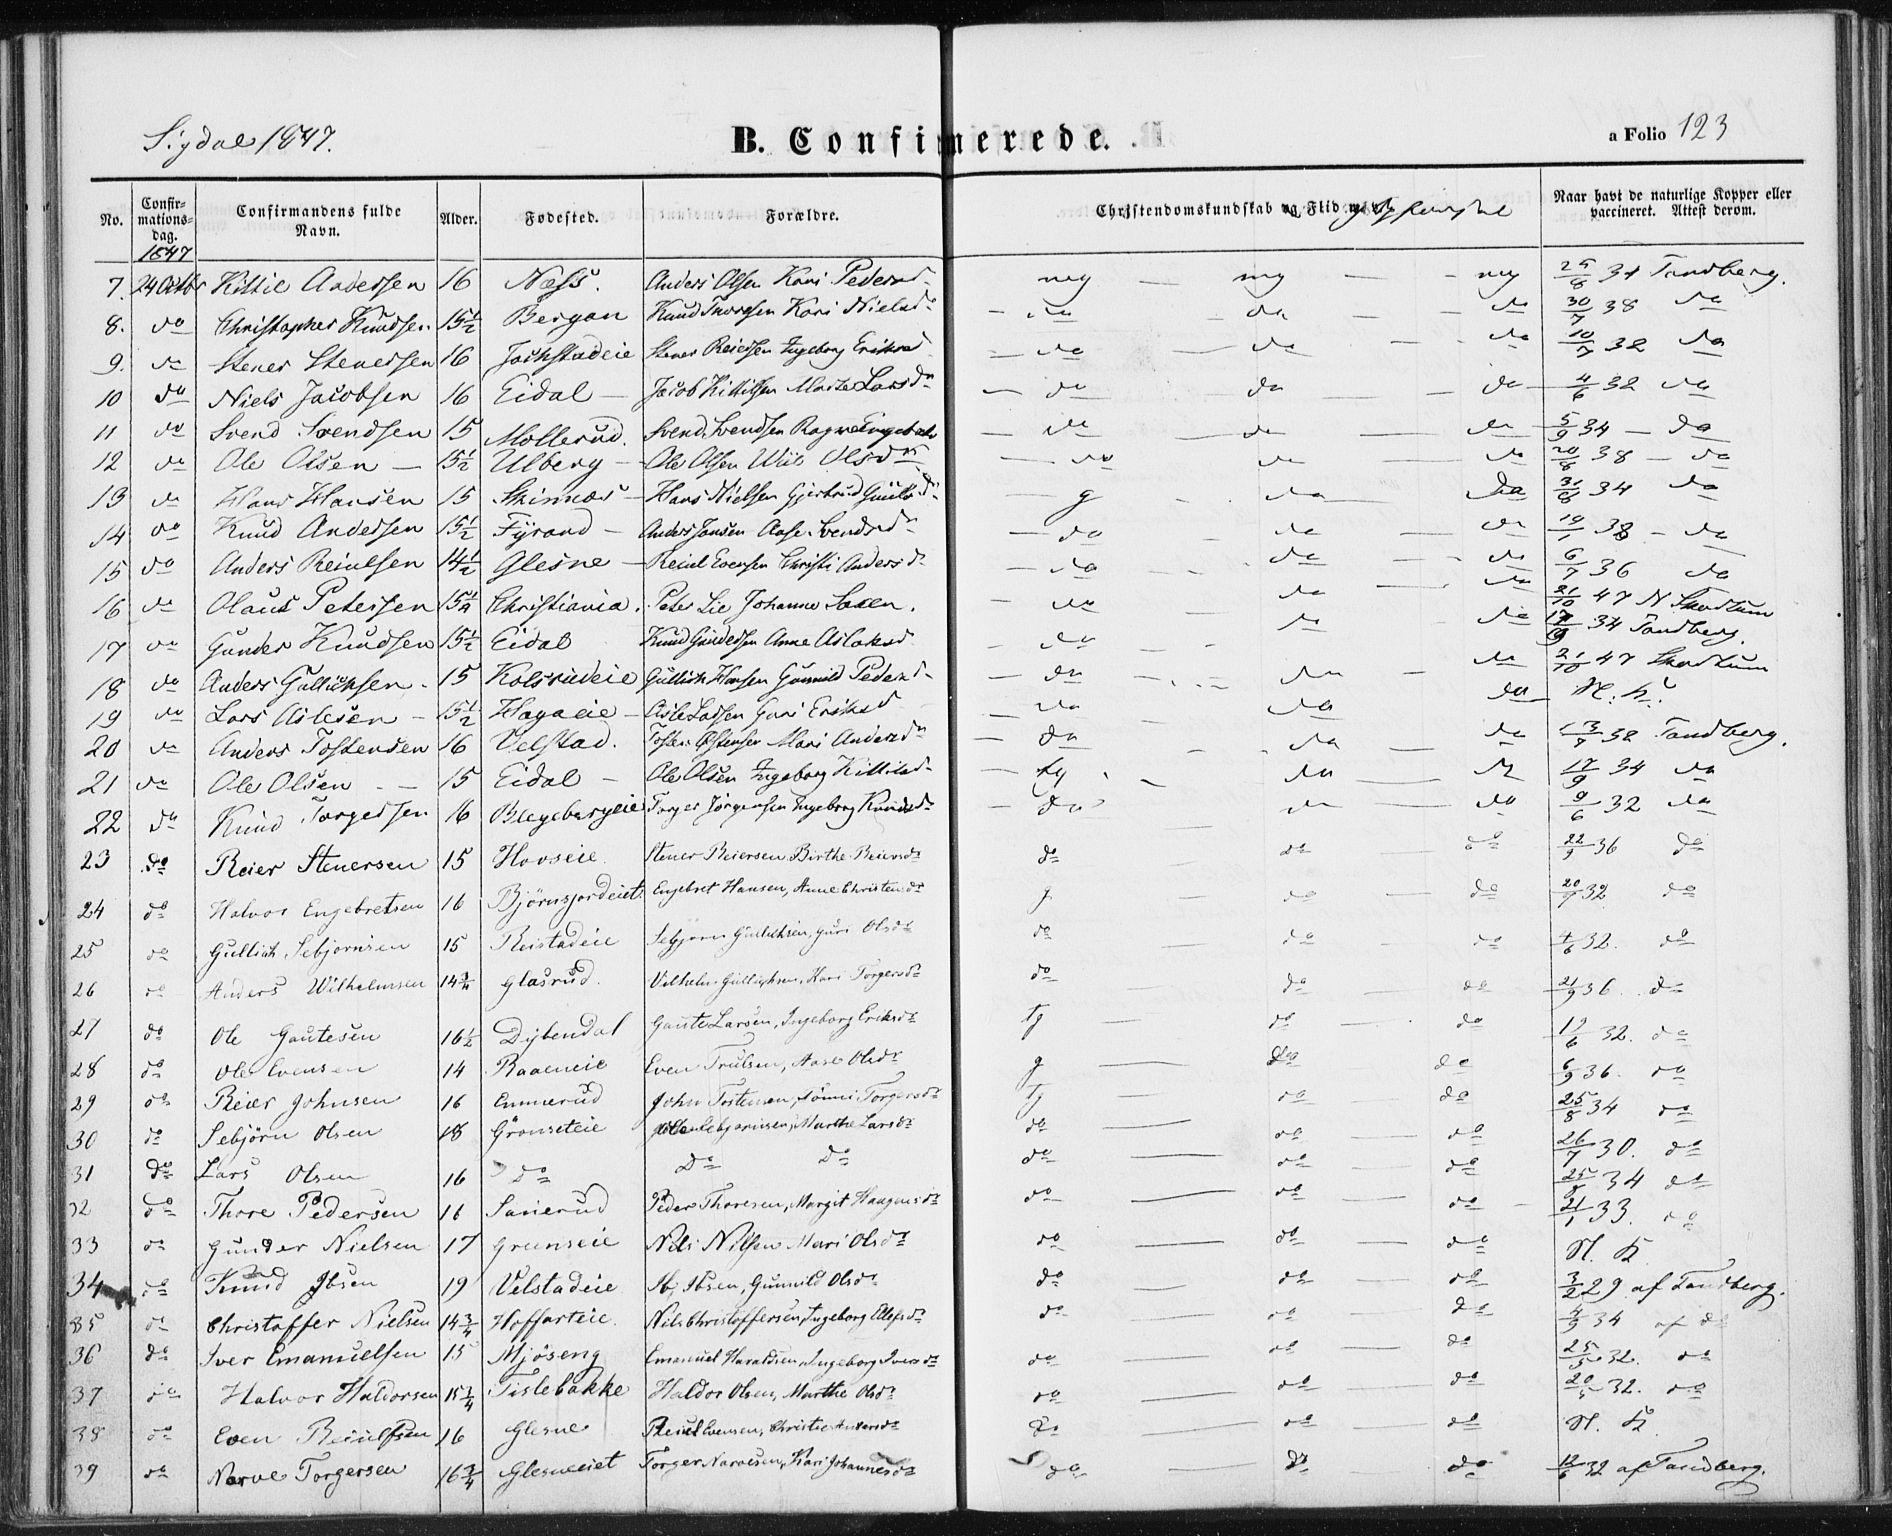 Sigdal 1847.
B. Confirmerede.
a Folio 123
No. Confirmations-dag. Confirmandens fulde Navn. Alder. Fødested. Forældre. Christendomskundskab og Flid Naar havt de naturlige Kopper eller vaccineret. Attest derom.
1847
7. 24 Octbr Kittil Andersen 16 Næss. Anders Olsen Kari Pedersd mg mg mg 25/8 34 Tandberg.
8. do Christopher Knudsen 15½ Bergan Knud Thorsen Kari Nielsdr do do do 30/7 38 do
9. do Stener Stenersen 16 Stener Reiersen Ingeborg Eriksd do do do 10/7 32 do
10 do Niels Jacobsen 16 Eidal Jacob Kittilsen Marte Larsdr do do do 4/6 32 do
11 do Svend Svendsen 15 Mollerud. Svend Svendsen do do do 5/9 34 do
12 do Ole Olsen 15½ Ulberg Ole Olsen Olsdr do do do 20/8 38 do
13 do Hans Hansen 15 Skinnes Hans Nielsen Gjertrud g do do 31/8 34 do
14 do Knud Andersen 15½ Fyrand Anders Jansen Aase Svendsdr do do do 19/1 38 do
15 do Anders Reiulsen 14½ Glesne Reiul Evensen Christi Andersdr do do do 6/7 36 do
16 do Olaus Petersen Christiania. Peter Lie Johanne Saxen. do do do 21/10 47 N
17 do Gunder Knudsen 15½ Eidal Knud Gundersen Anne Aslaksd do do do 34 Tandberg.
18 do Anders Gullichsen 15 Kolsrudeie Gullich Hansen Gunnild Pedersdr do do do 21/10 47
19 do Lars Aslesen 15½ Hagaeie Asle Larsen Guri Eriksd do do do N. K.
20 do Anders Tostensen 16 Velstad. Mari Andersdr do do do 38 Tandberg.
21 do Ole Olsen 15 Eidal Ole Olsen Ingeborg Kittilsdr tg do do 17/9 34 do
22 do Knud Torgersen 16 Blegebergeie Torger Jørgensen Ingeborg Knudsdr do do do 9/6 32 do
23 do Reier Stenersen 15 Hovseie. Stener Reiersen Birthe Reiersdr do do do 22/9 36 do
24 do Halvor Engebretsen 16 Engebret Hansen, Anne Christensdr g do do 20/9 32 do
25 do Gullich Sebjørnsen 15 Reistadeie Sebjørn Gullichsen, Guri Olsdr do do do 4/6 32. do
26 do Anders Wilhelmsen 14¾ Glasrud. Vilhelm Gullichsen, Kari Torgersdr do do do 21/9 36. do
27 do Ole Gautesen 16½ Dybendal Gaute Larsen, Ingeborg Eriksdr tg do do 19/6 32. do
28 do Ole Evensen 14 Raaeneie Even Trulsen, Aase Olsdr g do do 6/9 36. do
29 do Reier Johnsen 16 Emmerud John Tostensen, Tønni Torgersdr tg do do 25/8 34 do
30 do Sebjørn Olsen 18 Grønseteie Ole Sebjørnsen, Marthe Larsdr do do do 26/7 30. do
31 do Lars Olsen 16 do do do do do do 25/8 34 do
32 do Thore Pedersen 16 Sanerud Peder Thoresen, Margit Haagensdr do do do 21/1 33. do
33 do Gunder Nielsen 17 Grønseie Nils Nilsen Mari Olsdr do do do N. K
34 do Knud Ibsen 19 Velstadeie Ib Ibsen, Gunnild Olsdr do do do 3/2 29 af Tandberg.
35 do Christoffer Nielsen 14¾ Hoffarteie. Nils Christoffersen, Ingeborg Ellefsdr do do do 4/9 34 af do
36 do Iver Emanuelsen 15 Mjøseng Emanuel Haraldsen, Ingeborg Iversdr do do do 25/5 32. do
37 do Halvor Haldorsen 15¾ Tislebakke Haldor Olsen, Marthe Olsdr do do do 20/5 32. do
38 do Even Reiulsen 16 Glesne Reiul Evensen, Christie Andersdr do do do N. K
39 do Narve Torgersen 16¾ Glesneeiet Torger Narvesen, Kari Johannesdr do do do 12/6 32 af Tandberg.